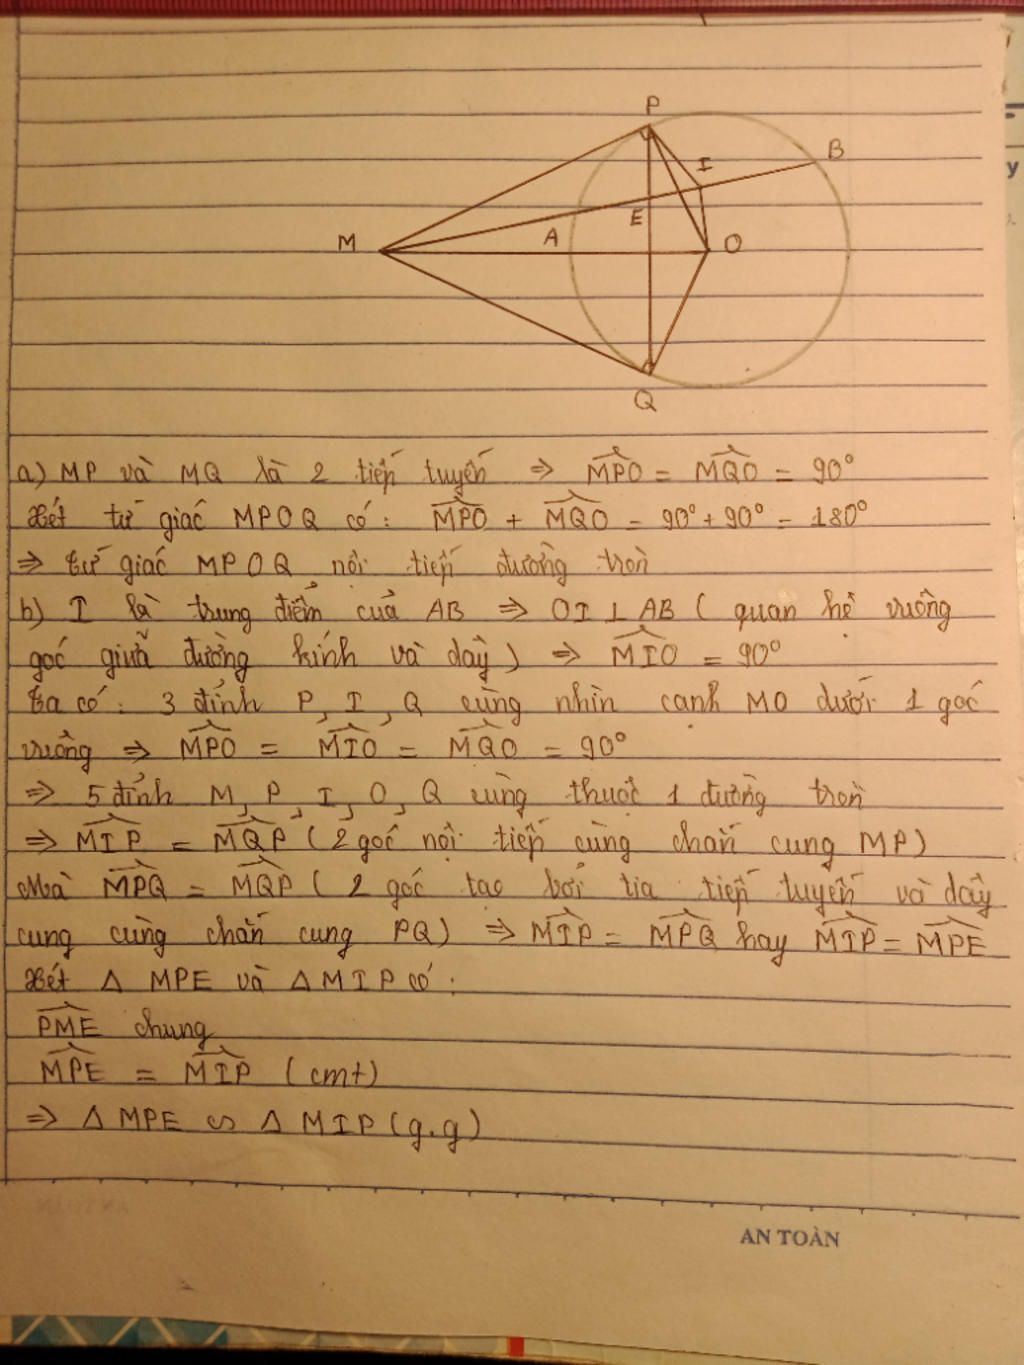 P
B
I
E
M
A
O
Q
a) MP và MQ là 2 tiếp tuyến ⇒ MPO = MQO = 90°
Xét tứ giác MPOQ có: MPO + MQO = 90° + 90° = 180°
⇒ tứ giác MPOQ nội tiếp đường tròn
b) I là trung điểm của AB ⇒ OI ⊥ AB ( quan hệ vuông
góc giữa đường kính và dây ) ⇒ MIO = 90°
Ta có: 3 đỉnh P, I, Q cùng nhìn cạnh MO dưới 1 góc
vuông ⇒ MPO = MIO = MQO = 90°
⇒ 5 đỉnh M, P, I, O, Q cùng thuộc 1 đường tròn
⇒ MIP = MQP ( 2 góc nội tiếp cùng chắn cung MP)
Mà MPQ = MQP ( 2 góc tạo bởi tia tiếp tuyến và dây
cung cùng chắn cung PQ) ⇒ MIP = MPQ hay MIP = MPE
Xét Δ MPE và Δ MIP có:
PME chung
MPE = MIP (cmt)
⇒ Δ MPE ∽ Δ MIP (g.g)
AN TOÀN